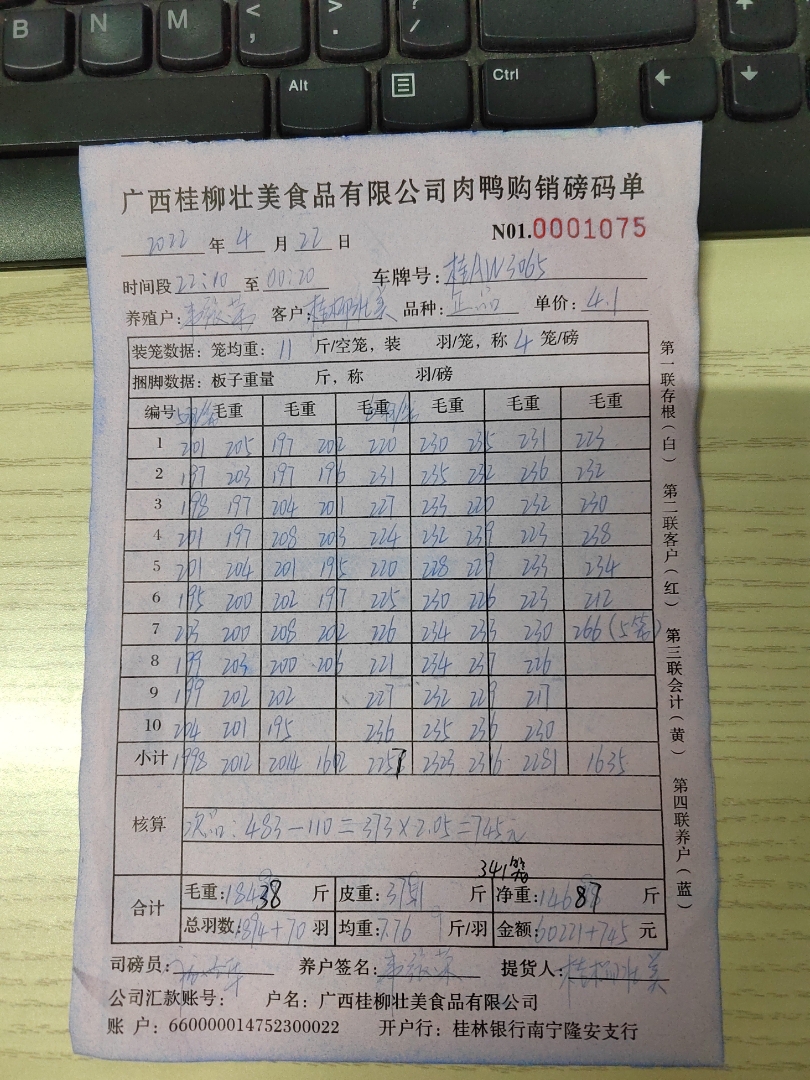 B N M < , > . ? /
Alt Ctrl
广西桂柳壮美食品有限公司肉鸭购销磅码单
2022 年 4 月 22 日 N01.0001075
时间段 22:10 至 00:20 车牌号: 桂AW3065
养殖户: 客户: 桂柳壮美 品种: 正品 单价: 4.1
装笼数据: 笼均重: 11 斤/空笼, 装 羽/笼, 称 4 笼/磅
捆脚数据: 板子重量 斤, 称 羽/磅
编号 毛重 毛重 毛重 毛重 毛重 毛重
1 201 205 197 202 220 230 235 231 223
2 197 203 197 196 231 235 232 236 232
3 198 197 204 201 227 233 220 232 230
4 201 197 208 203 224 232 239 223 238
5 201 204 201 195 220 228 229 233 234
6 195 200 202 197 225 230 226 223 212
7 203 200 208 202 226 234 233 230 266 (5笼)
8 199 203 200 206 221 234 237 226
9 199 202 202 227 232 229 217
10 204 201 195 236 235 236 230
小计 1998 2012 2014 1602 2257 2323 2316 2281 1635
核算
次品: 483-110=373×2.05=745元
341笼
合计 毛重: 18438 斤 皮重: 3751 斤 净重: 14687 斤
总羽数: 1894+70 羽 均重: 7.76 斤/羽 金额: 60221+745 元
司磅员: 养户签名: 提货人: 桂柳壮美
公司汇款账号: 户名: 广西桂柳壮美食品有限公司
账 户: 660000014752300022 开户行: 桂林银行南宁隆安支行
第一联存根(白) 第二联客户(红) 第三联会计(黄) 第四联养户(蓝)